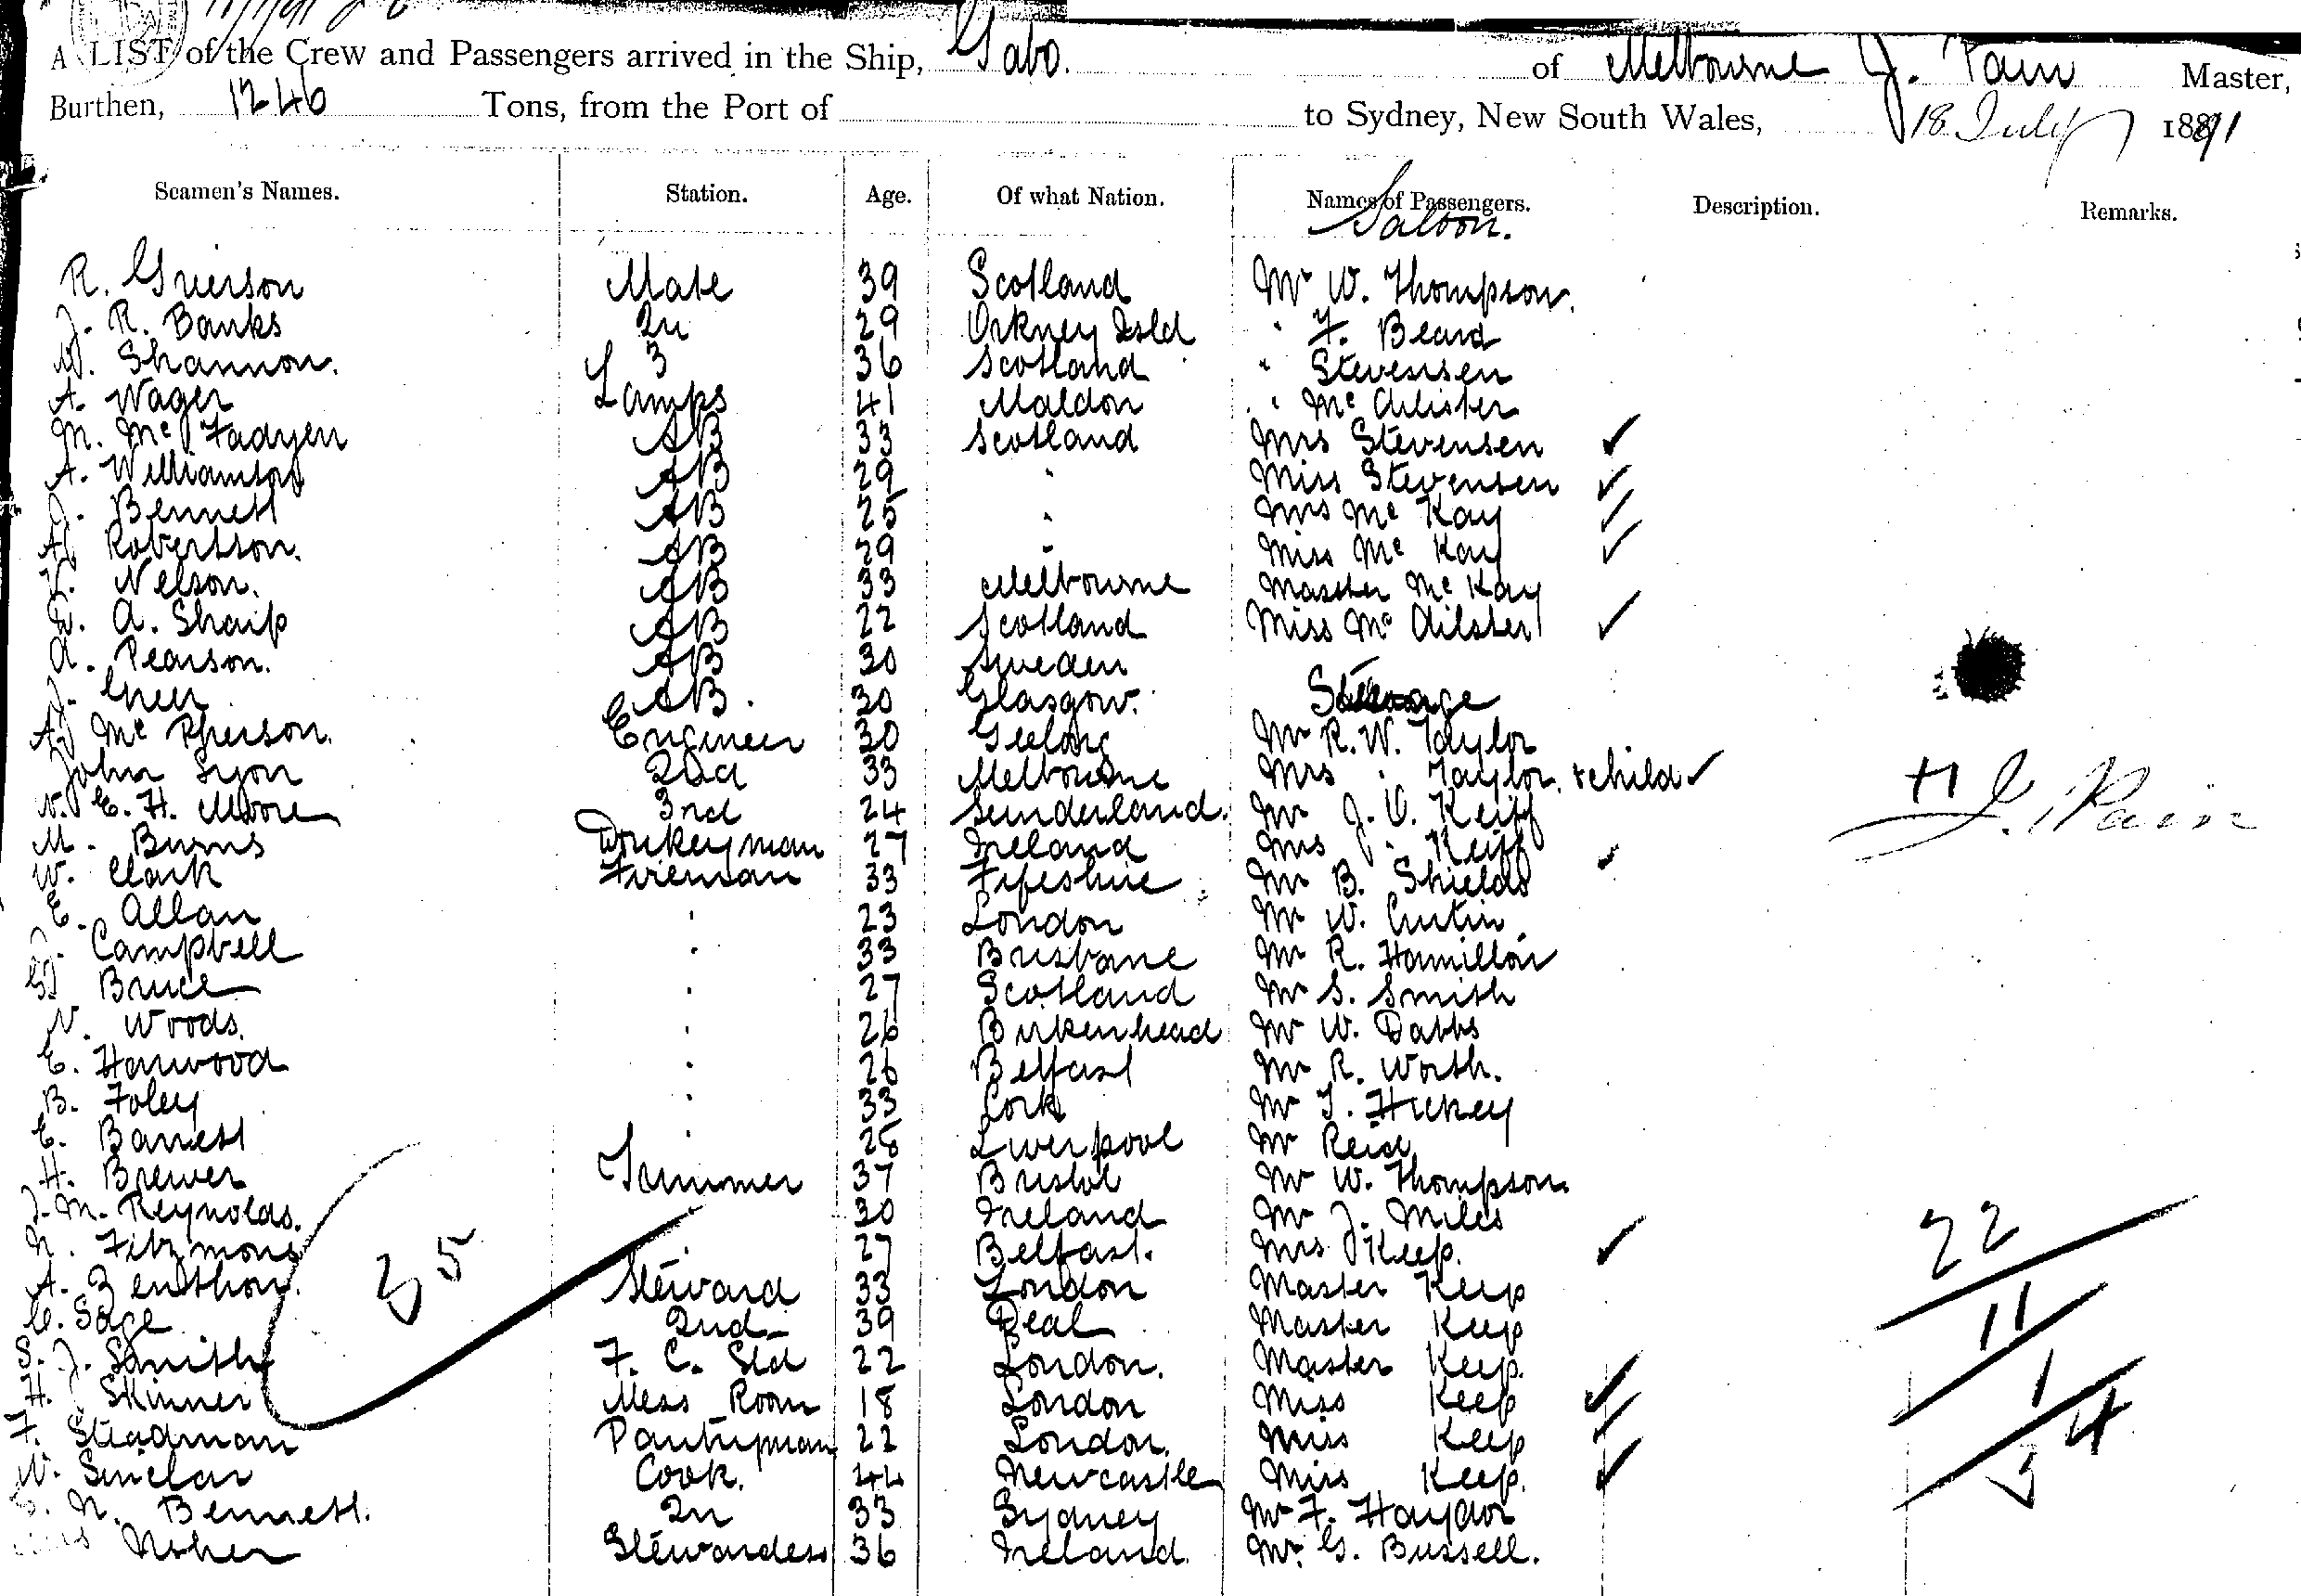 A LIST of the Crew and Passengers arrived in the Ship, Gabo. of Melbourne J. Pain Master,
Burthen, 1246 Tons, from the Port of to Sydney, New South Wales, 18 July 1891
Seamen's Names. Station. Age. Of what Nation. Names of Passengers. Description. Remarks.
Saloon.
R. Grierson Mate 39 Scotland Mr W. Thompson.
J. R. Banks 2n 29 Orkney Isld " F. Beard
W. Shannon. 3 36 Scotland " Stevensen
A. Wager Lamps 41 Maldon " Mc Alister
M. Mc Fadyen AB 33 Scotland Mrs Stevensen ✓
A. Williamson AB 29 " Miss Stevensen ✓
J. Bennett AB 25 " Mrs Mc Kay ✓
A. Robertson. AB 29 " Miss Mc Kay ✓
Nelson. AB 33 Melbourne Master Mc Kay
A. Sharp AB 22 Scotland Miss Mc Ailster ✓
A. Pearson. AB 30 Sweden
J. Greer AB. 30 Glasgow. Steerage
A. Mc Pherson. Engineer 30 Geelong Mr R. W. Taylor
John Lyon 2nd 33 Melbourne Mrs " Taylor. & child ✓
W. E. H. Moore 3rd 24 Sunderland. Mr J. V. Keiff
M. Burns Donkeyman 27 Ireland Mrs J. Keiff ✓ J. Pain
W. Clark Fireman 33 Fifeshire Mr B. Shields
E. Allan " 23 London Mr W. Curtin.
Campbell " 33 Brisbane Mr R. Hamilton
G. Bruce " 27 Scotland Mr S. Smith
W. Woods. " 26 Birkenhead Mr W. Dabbs
E. Harwood " 26 Belfast Mr R. Worth.
B. Foley " 33 Cork Mr T. Hickey
E. Barrett " 28 Liverpool Mr Reid
H. Brewer Trimmer 37 Bristol Mr W. Thompson
J. M. Reynolds. 30 Ireland Mr J. Miles
N. Fitzmons " 27 Belfast. Mrs Keep. ✓ 22
A. Zenthon. Steward 33 London Master Keep
35
C. Sage 2nd 39 Deal Master Keep 11
S. J. Smith F. C. Std 22 London. Master Keep.
H. Skinner Mess Room 18 London Miss Keep ✓ 1
F. Steadman Pantryman 22 London. Miss Keep ✓ 4
W. Sinclair Cook. 44 Newcastle Miss Keep. ✓
S. N. Bennett. 2n 33 Sydney Mr F. Haydon
Maher Stewardess 36 Ireland. Mr. G. Bussell.